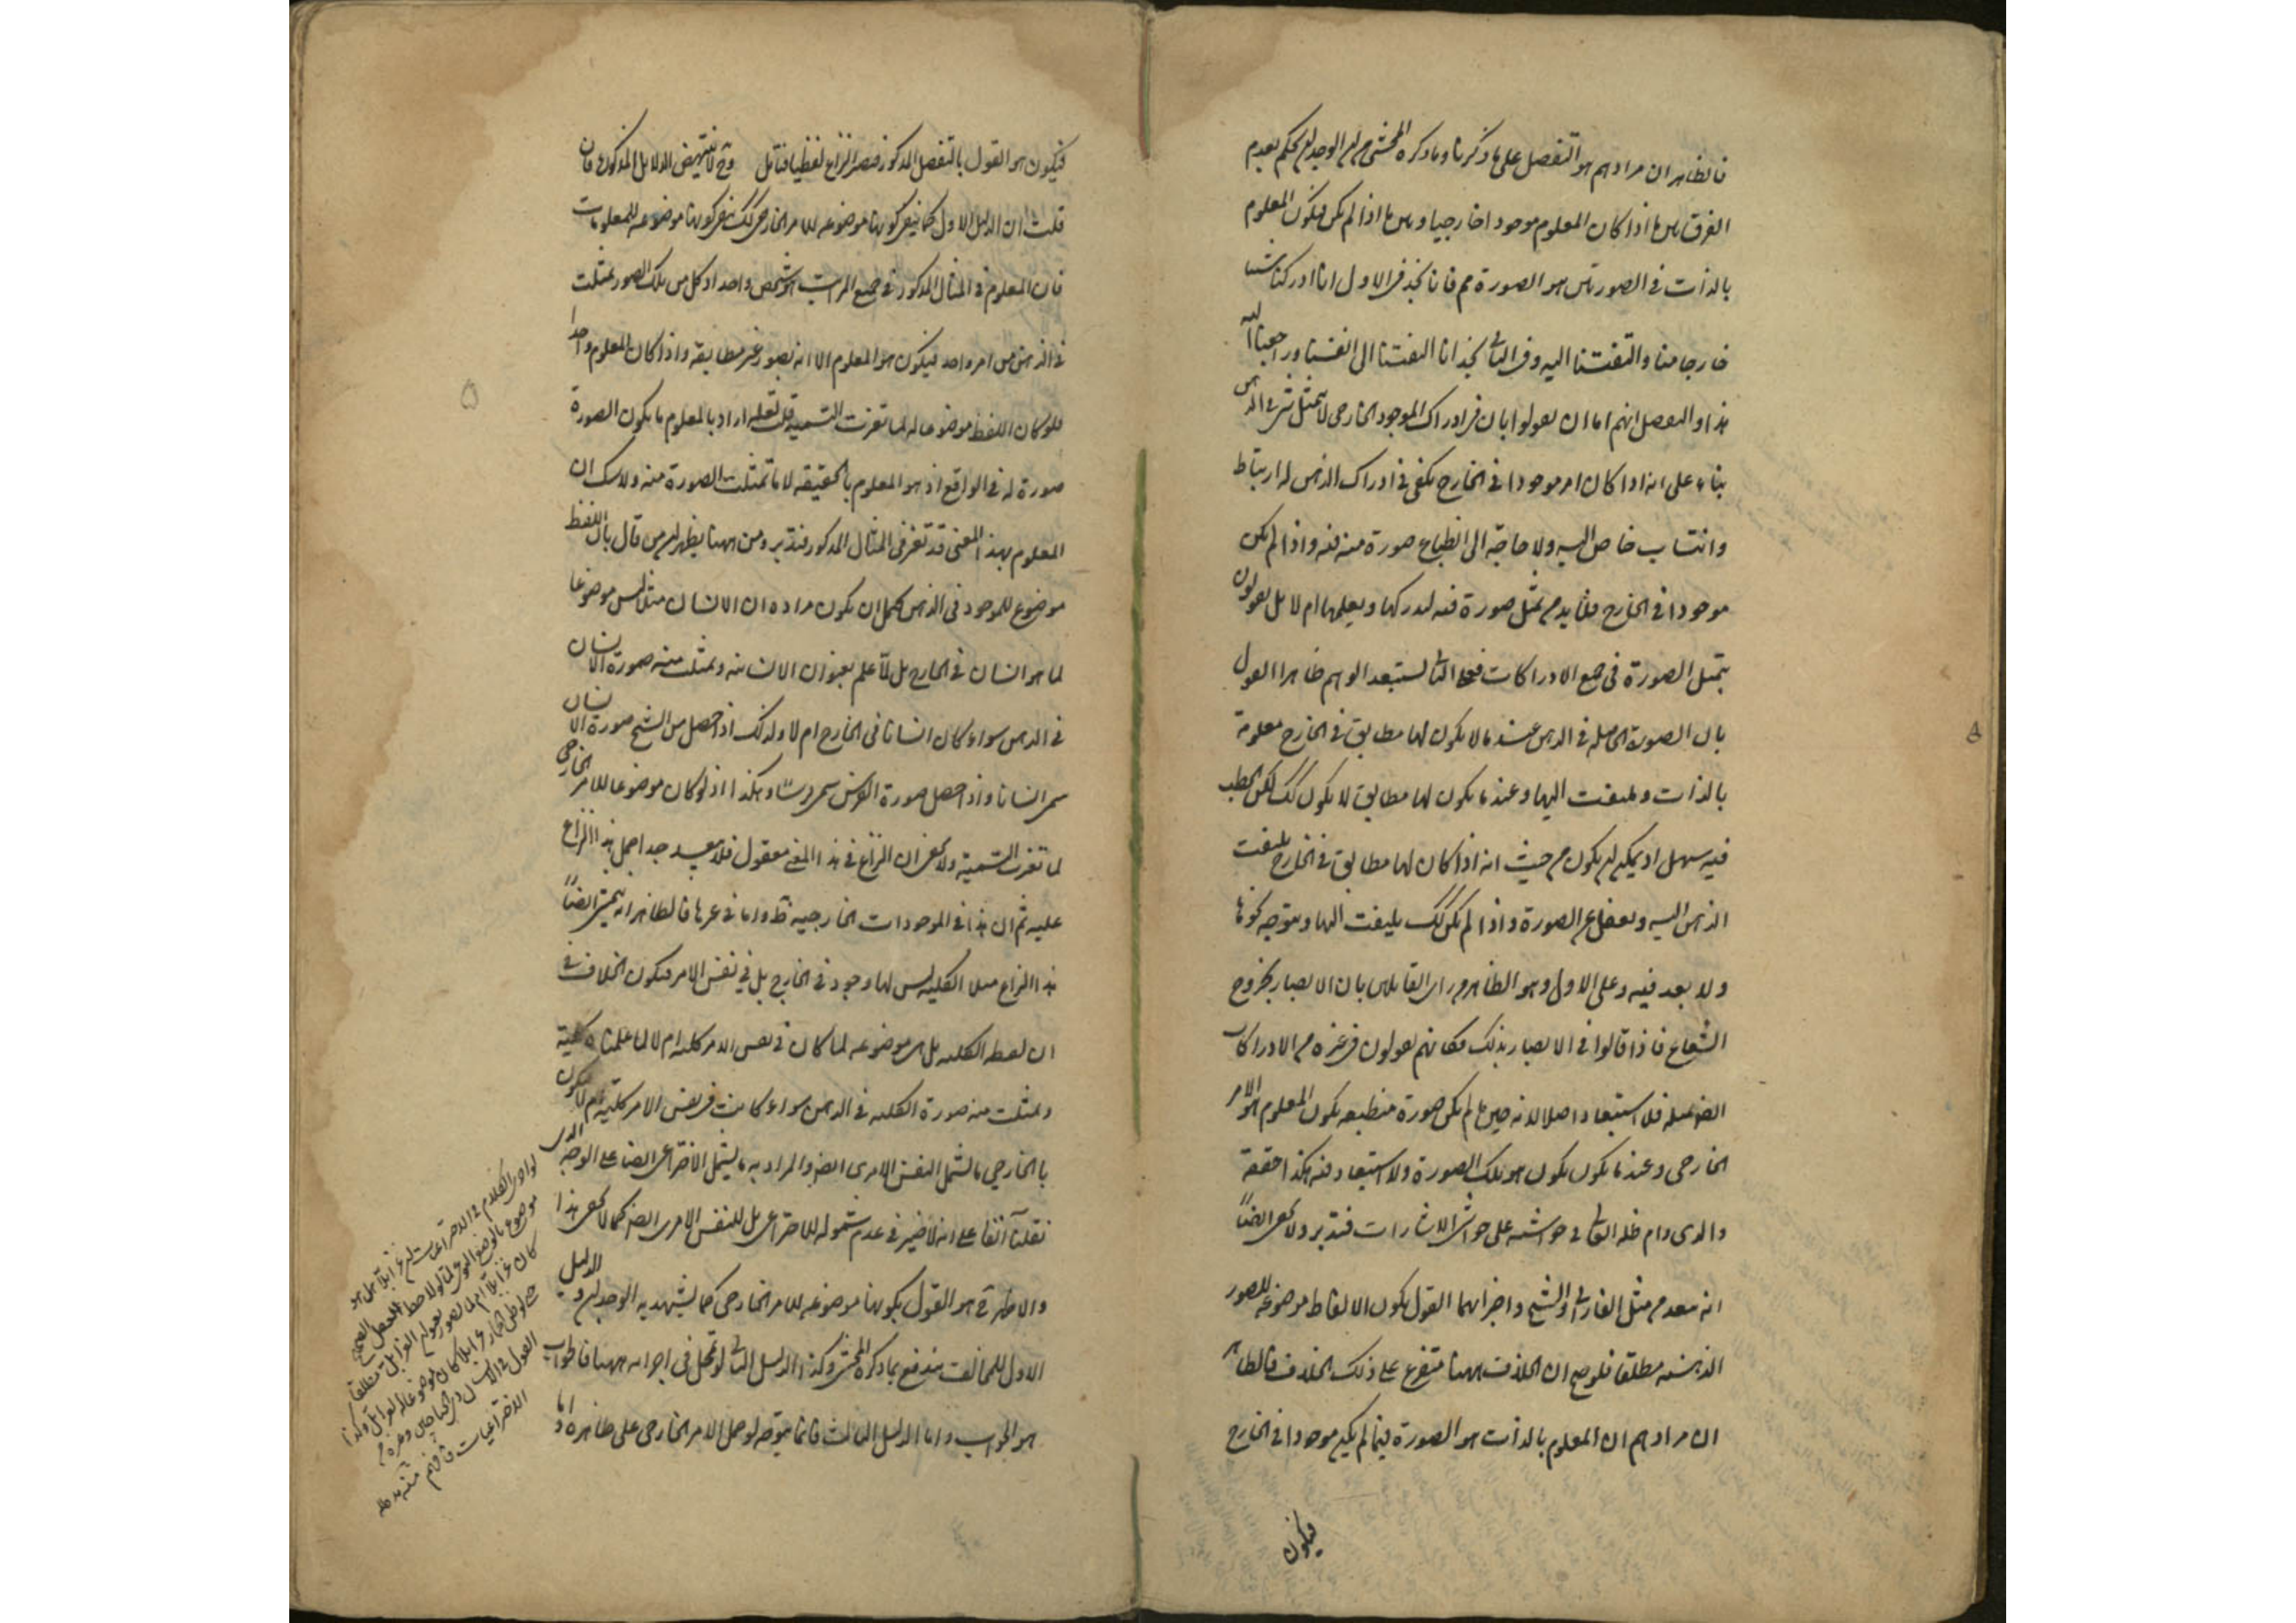 فالظاهر ان مرادهم هو التفصيل على ما ذكرنا وما ذكره المحشي من ان الوجدان يحكم بعدم
الفرق بين ما اذا كان المعلوم موجودا خارجيا وبين ما اذا لم يكن فيكون المعلوم
بالذات في الصورتين هو الصورة مم فانا نجد في الاول انا ادركنا شيئا
خارجا منا والتفتنا اليه وفي الثاني نجد انا التفتنا الى انفسنا وراجعنا اليه
هذا والتفصيل انهم اما ان يقولوا بان في ادراك الموجود الخارجي لا يتمثل شيء في الذهن
بناء على انه اذا كان امر موجودا في الخارج يكفي في ادراك الذهن له ارتباط
وانتساب خاص اليه ولا حاجة الى انطباع صورة منه فيه واذا لم يكن
موجودا في الخارج فلا بد من تمثل صورة فيه ليدركها ويعلمها ام لا بل يقولون
بتمثل الصورة في جميع الادراكات فعلى الثاني يستبعد الوهم ظاهرا القول
بان الصورة الحاصلة في الذهن عند ما لا يكون لها مطابق في الخارج معلومة
بالذات وملتفت اليها وعند ما يكون لها مطابق لا يكون كك لكن الخطب
فيه سهل اذ يمكن ان يكون من حيث انه اذا كان لها مطابق في الخارج يلتفت
الذهن اليه ويغفل عن الصورة واذا لم يكن كك يلتفت اليها ويتوجه نحوها
ولا بعد فيه وعلى الاول وهو الظاهر من راي القائلين بان الابصار بخروج
الشعاع فاذا قالوا في الابصار بذلك فكانهم يقولون في غيره من الادراكات
ايض بمثله فلا استبعاد اصلا لانه حين ما لم يكن صورة منطبعة يكون المعلوم هو الامر
الخارجي وعند ما يكون يكون هو تلك الصورة ولا استبعاد فيه هكذا حققه
والدي دام ظله العالي في حواشيه على حواشي الاشارات فتدبر ولا يخفى ايضا
انه بعد من مثل الفارابي والشيخ واضرابهما القول بكون الالفاظ موضوعة للصور
الذهنية مطلقا فلو صح ان الخلاف ههنا متفرع على ذلك الخلاف فالظاهر
ان مرادهم ان المعلوم بالذات هو الصورة فيما لم يكن موجودا في الخارج
فيكون
فيكون هو القول بالتفصيل المذكور فيصير النزاع لفظيا فتأمل وح لا ينتهض الدلايل المذكورة فان
قلت ان الدليل الاول كما ينفي كونها موضوعة للامر الخارجي كك ينفي كونها موضوعة للمعلومات
فان المعلوم في المثال المذكور في جميع المراتب هو شخص واحد اذ كل من تلك الصور تمثلت
في الذهن من امر واحد فيكون هو المعلوم الا انه بصور غير مطابقة واذا كان المعلوم واحدا
فلو كان اللفظ موضوعا له لما تغيرت التسمية قلت لعله اراد بالمعلوم ما يكون الصورة
صورة له في الواقع اذ هو المعلوم بالحقيقة لا ما تمثلت الصورة منه ولا شك ان
المعلوم بهذا المعنى قد تغير في المثال المذكور فتدبر ومن ههنا يظهر ان من قال بان اللفظ
موضوع للموجود في الذهن يحتمل ان يكون مراده ان الانسان مثلا ليس موضوعا
لما هو انسان في الخارج بل لما علم بعنوان الانسانية وتمثلت منه صورة الانسان
في الذهن سواء كان انسانا في الخارج ام لا ولذلك اذا حصل من الشبح صورة الانسان
سمي انسانا واذا حصل صورة الفرس سمي فرسا وهكذا اذ لو كان موضوعا للامر الخارجي
لما تغيرت التسمية ولا يخفى ان النزاع في هذا المعنى معقول فلا يبعد جدا حمل هذا النزاع
عليه ثم ان هذا في الموجودات الخارجية ظ واما في غيرها فالظاهر انه يتمشى ايضا
هذا النزاع مثلا الكلية ليس لها وجود في الخارج بل في نفس الامر فيكون الخلاف في
ان لفظة الكلية هل هي موضوعة لما كان في نفس الامر كلية ام لا لما علمناه كلية
وتمثلت منه صورة الكلية في الذهن سواء كانت في نفس الامر كلية ام لا فيكون
بالخارجي ما يشمل النفس الامري ايض والمراد به ما يشمل الاختراعي ايضا على الوجه الذي
نقلنا آنفا على انه لا ضير في عدم شموله للاختراعي بل للنفس الامري ايض كما لا يخفى هذا
والاظهر في هو القول بكونها موضوعة للامر الخارجي كما يشهد به الوجدان والدليل
الاول للمخالف يندفع بما ذكره المحشي وكذا الدليل الثاني لو تمحل في اجرائه ههنا فالجواب
هو الجواب واما الدليل الثالث فانما يتوجه لو حمل الامر الخارجي على ظاهره واما